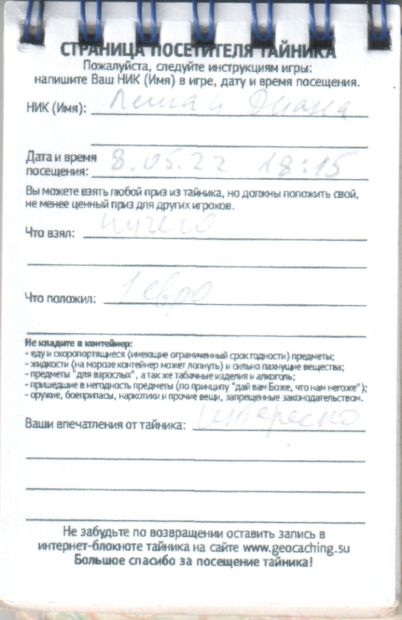 СТРАНИЦА ПОСЕТИТЕЛЯ ТАЙНИКА
Пожалуйста, следуйте инструкциям игры:
напишите Ваш НИК (Имя) в игре, дату и время посещения.
НИК (Имя): Леша и Диана
Дата и время
посещения: 8.05.22 18:15
Вы можете взять любой приз из тайника, но должны положить свой,
не менее ценный приз для других игроков.
Что взял: ничего
Что положил: 1 евро
Не кладите в контейнер:
- еду и скоропортящиеся (имеющие ограниченный срок годности) предметы;
- жидкости (на морозе контейнер может лопнуть) и сильно пахнущие вещества;
- предметы "для взрослых", а так же табачные изделия и алкоголь;
- пришедшие в негодность предметы (по принципу "дай вам Боже, что нам негоже");
- оружие, боеприпасы, наркотики и прочие вещи, запрещенные законодательством.
Ваши впечатления от тайника: Интересно
Не забудьте по возвращении оставить запись в
интернет-блокноте тайника на сайте www.geocaching.su
Большое спасибо за посещение тайника!